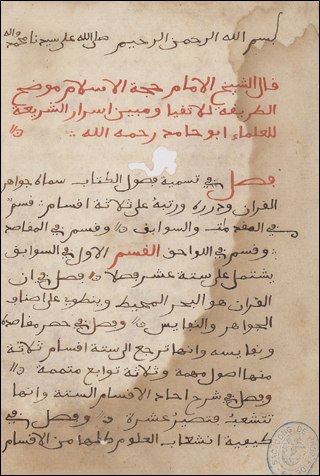 بسم الله الرحمن الرحيم صلى الله على سيدنا محمد وآله
قال الشيخ الامام حجة الاسلام موضح
الطريقة للاتقيا ومبين اسرار الشريعة
للعلماء ابو حامد رحمه الله
فصل في تسمية فصول الكتاب سماه جواهر
القران ودرره ورتبه على ثلاثة اقسام قسم
في المقدمات والسوابق وقسم في المقاصد
وقسم في اللواحق القسم الاول في السوابق
يشتمل على ستة عشر فصلا فصل في ان
القران هو البحر المحيط وينطوي على اصناف
الجواهر والنفايس وفصل في حصر مقاصده
ونفايسه وانها ترجع الى ستة اقسام ثلاثة
منها اصول مهمة وثلاثة توابع متممة
وفصل في شرح احاد الاقسام الستة وانها
تتشعب فتصير عشرة وفصل في
كيفية انشعاب العلوم كلها من الاقسام